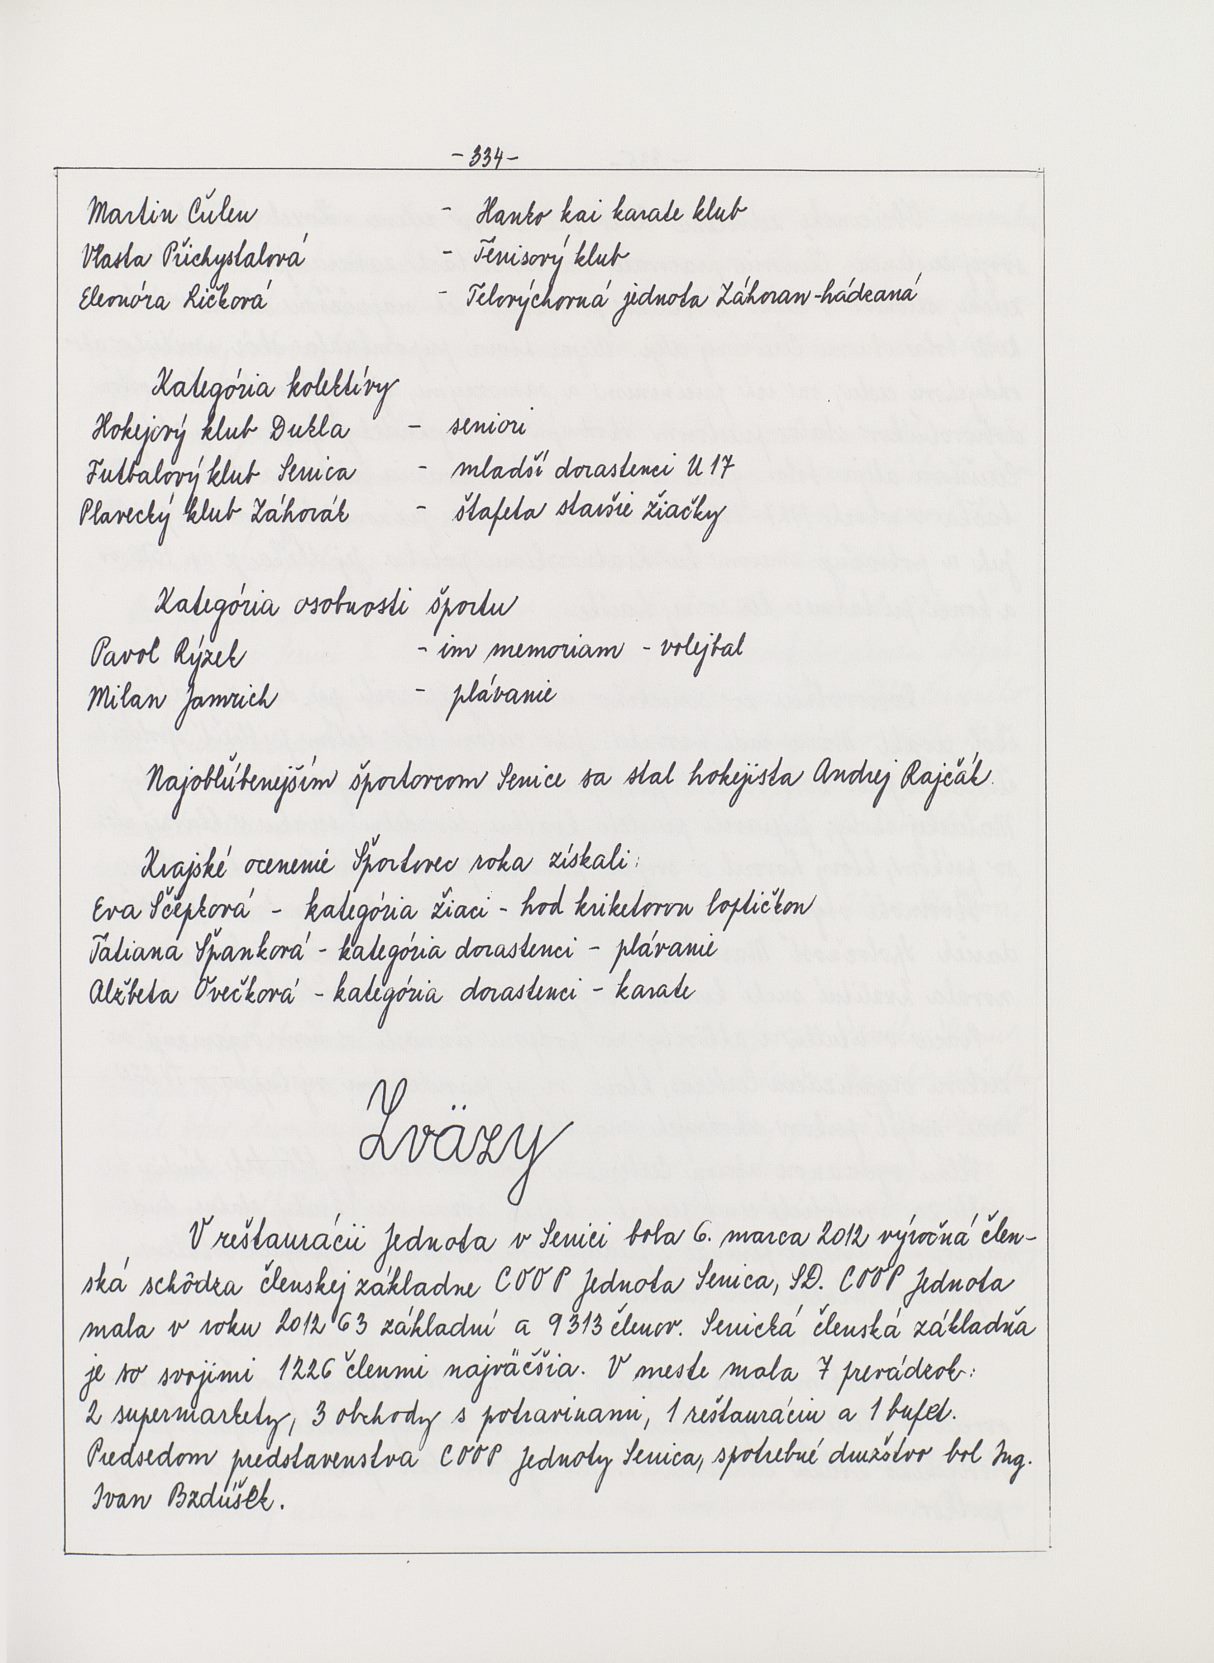 - 334 -
Martin Čulen - Hanko kai karate klub
Vlasta Přichystalová - Tenisový klub
Eleonóra Ričková - Telovýchovná jednota Záhoran - hádzaná
Kategória kolektívy
Hokejový klub Dukla - seniori
Futbalový klub Senica - mladší dorastenci U 17
Plavecký klub Záhorák - štafeta staršie žiačky
Kategória osobnosti športu
Pavol Rýzek - im memoriam - volejbal
Milan Jamrich - plávanie
Najobľúbenejším športovcom Senice sa stal hokejista Andrej Rajčák.
Krajské ocenenie Športovec roka získali:
Eva Ščepková - kategória žiaci - hod kriketovou loptičkou
Tatiana Španková - kategória dorastenci - plávanie
Alžbeta Ovečková - kategória dorastenci - karate
Zväzy
V reštaurácii Jednota v Senici bola 6. marca 2012 výročná člen-
ská schôdza členskej základne COOP Jednota Senica, SD. COOP Jednota
mala v roku 2012 63 základní a 9313 členov. Senická členská základňa
je so svojimi 1226 členmi najväčšia. V meste mala 7 prevádzok:
2 supermarkety, 3 obchody s potravinami, 1 reštauráciu a 1 bufet.
Predsedom predstavenstva COOP Jednoty Senica, spotrebné družstvo bol Ing.
Ivan Bzdúšek.